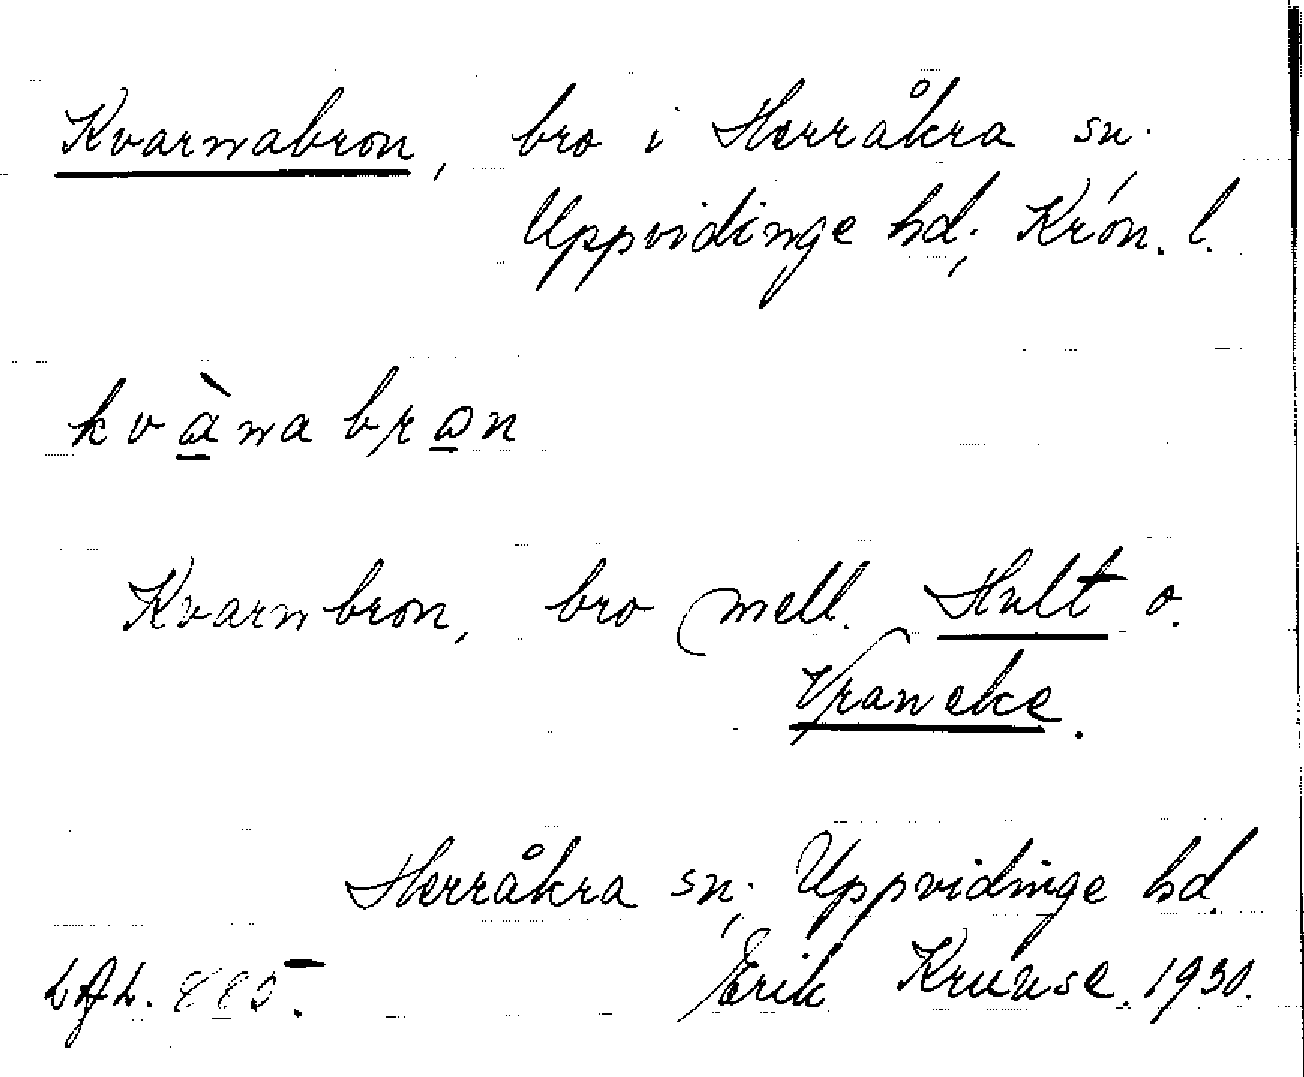 Kvarnabron, bro i Herråkra sn.
Uppvidinge hd; Krón. l.
kvànabron
Kvarnbron, bro mell. Hult o.
Vraneke.
Herråkra sn; Uppvidinge hd
Erik Kruuse. 1930.